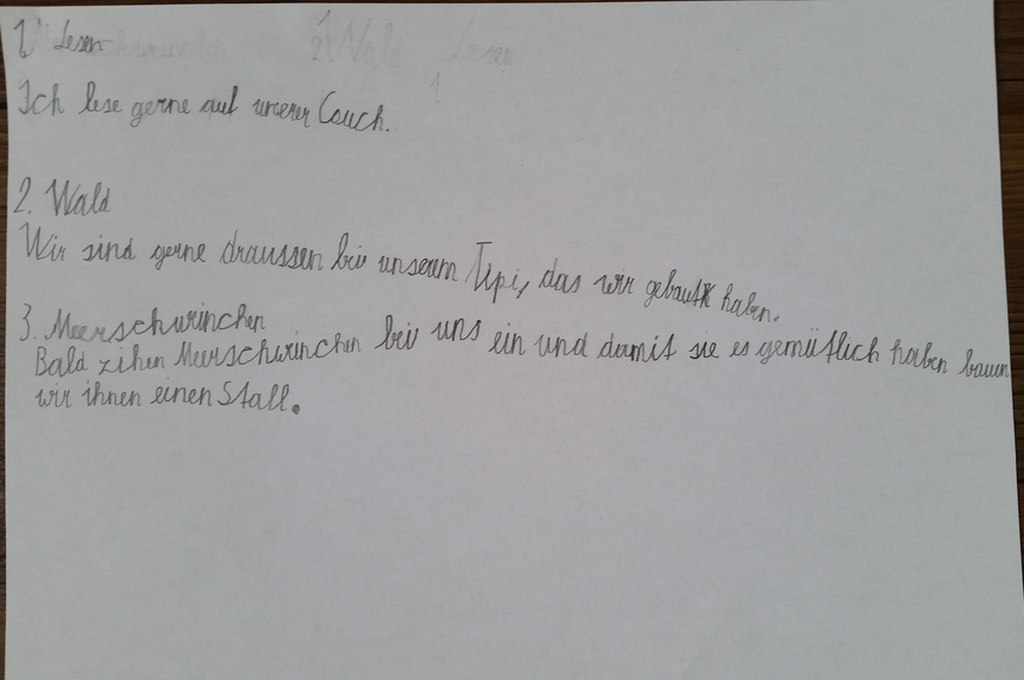 1. Lesen
Ich lese gerne auf unserer Couch.
2. Wald
Wir sind gerne draussen bei unserem Tipi, das wir gebaut haben.
3. Meerschwinchen
Bald zihen Meerschwinchen bei uns ein und damit sie es gemütlich haben bauen
wir ihnen einen Stall.